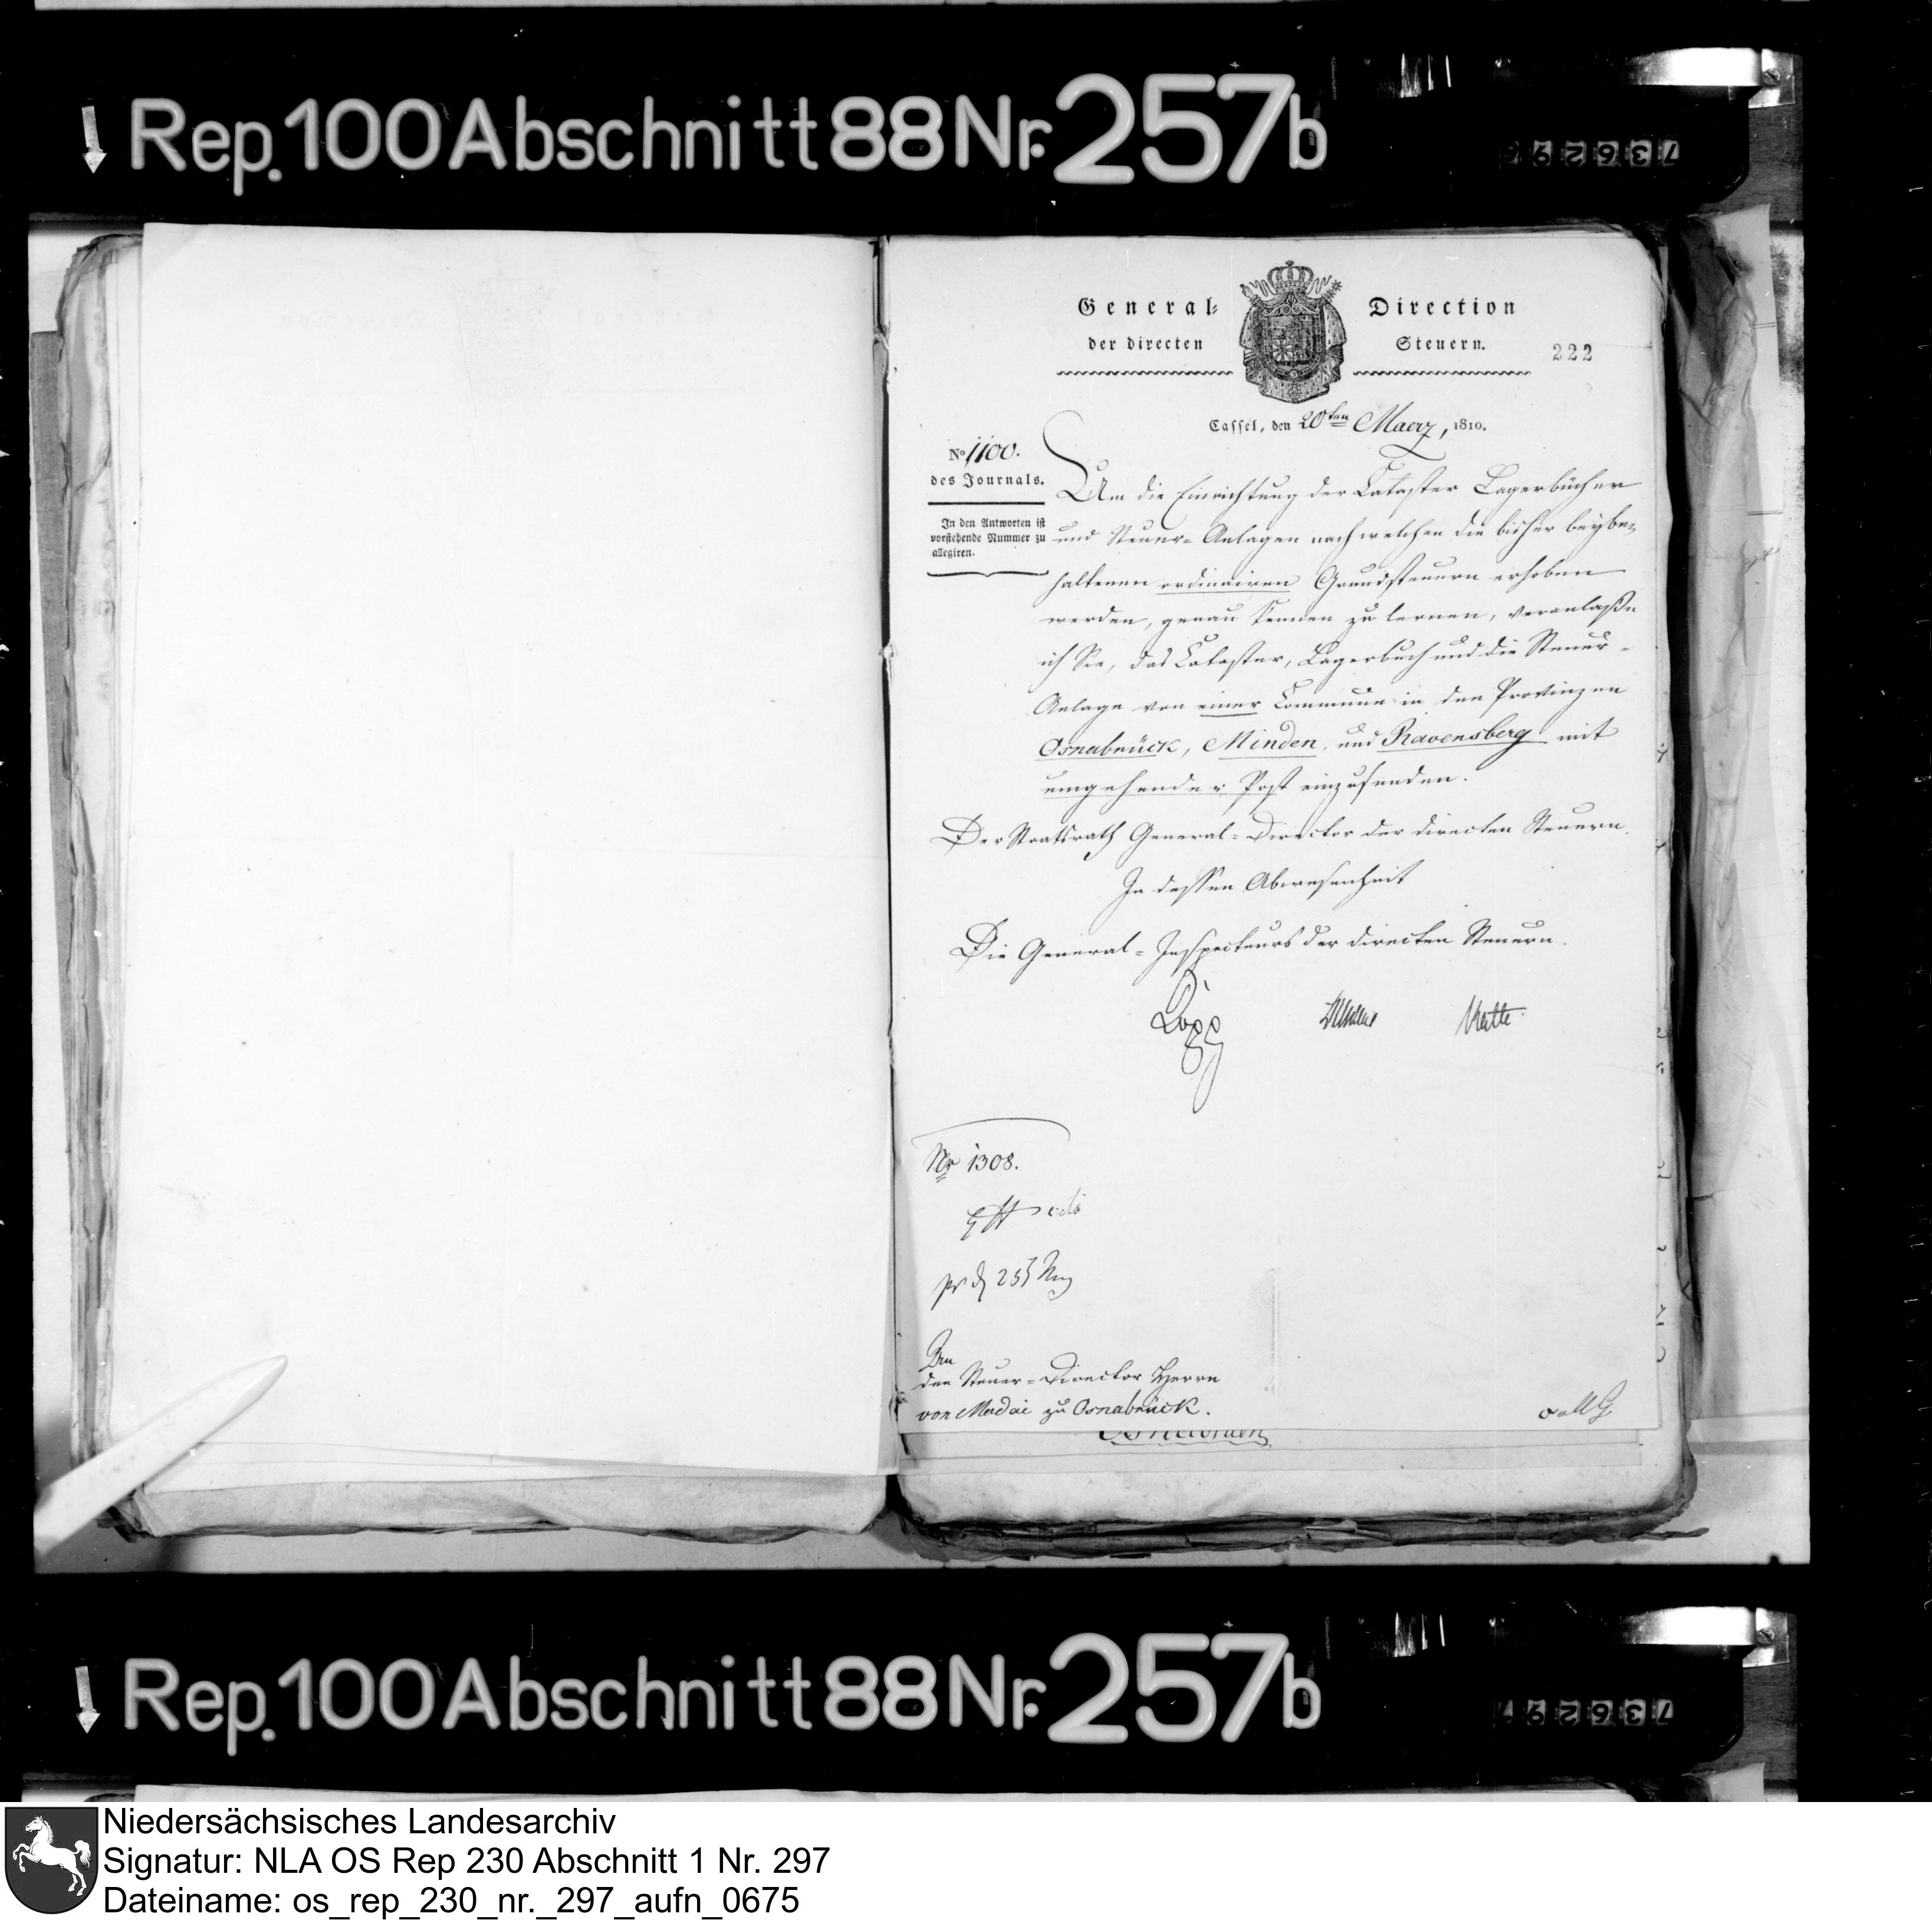 Rep. 100 Abschnitt 88 Nr. 257b
736297
General-Direction
der directen Steuern.
222
Cassel, den 20ten Maerz, 1810.
No 1100.
des Journals.
In den Antworten ist
vorstehende Nummer zu
allegiren.
Um die Einrichtung der Cataster Lagerbücher
und Steuer-Anlagen nach welchen die bisher beybe-
haltenen ordinairen Grundsteuern erhoben
werden, genau kennen zu lernen, veranlaße
ich Sie, das Cataster, Lagerbuch und die Steuer-
Anlage von einer Commune in den Provinzen
Osnabrück, Minden, und Ravensberg mit
umgehender Post einzusenden.
Der Staatsrath General-Director der directen Steuern.
In dessen Abwesenheit
Die General-Inspecteurs der directen Steuern.
Nr 1308.
An
den Steuer-Director Herrn
von Madai zu Osnabrück.
Rep. 100 Abschnitt 88 Nr. 257b
736297
Niedersächsisches Landesarchiv
Signatur: NLA OS Rep 230 Abschnitt 1 Nr. 297
Dateiname: os_rep_230_nr._297_aufn_0675